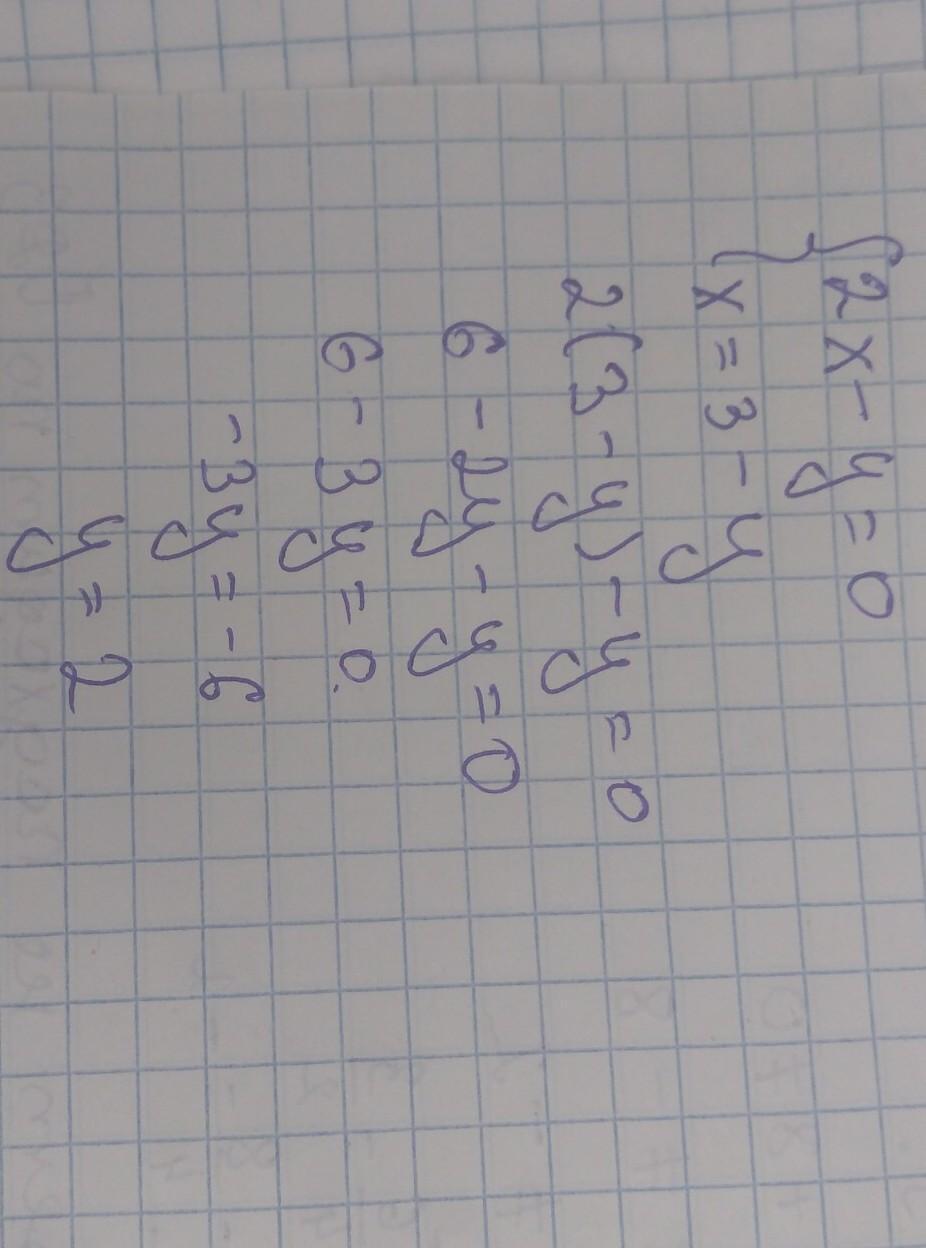 2x-y=0
x=3-y
2(3-y)-y=0
6-2y-y=0
6-3y=0.
-3y=-6
y=2